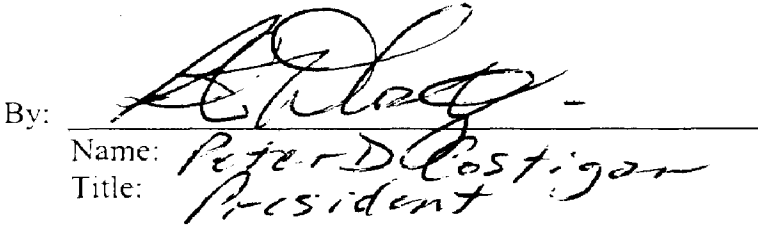 By:
Name: Peter D Costigan
Title: President